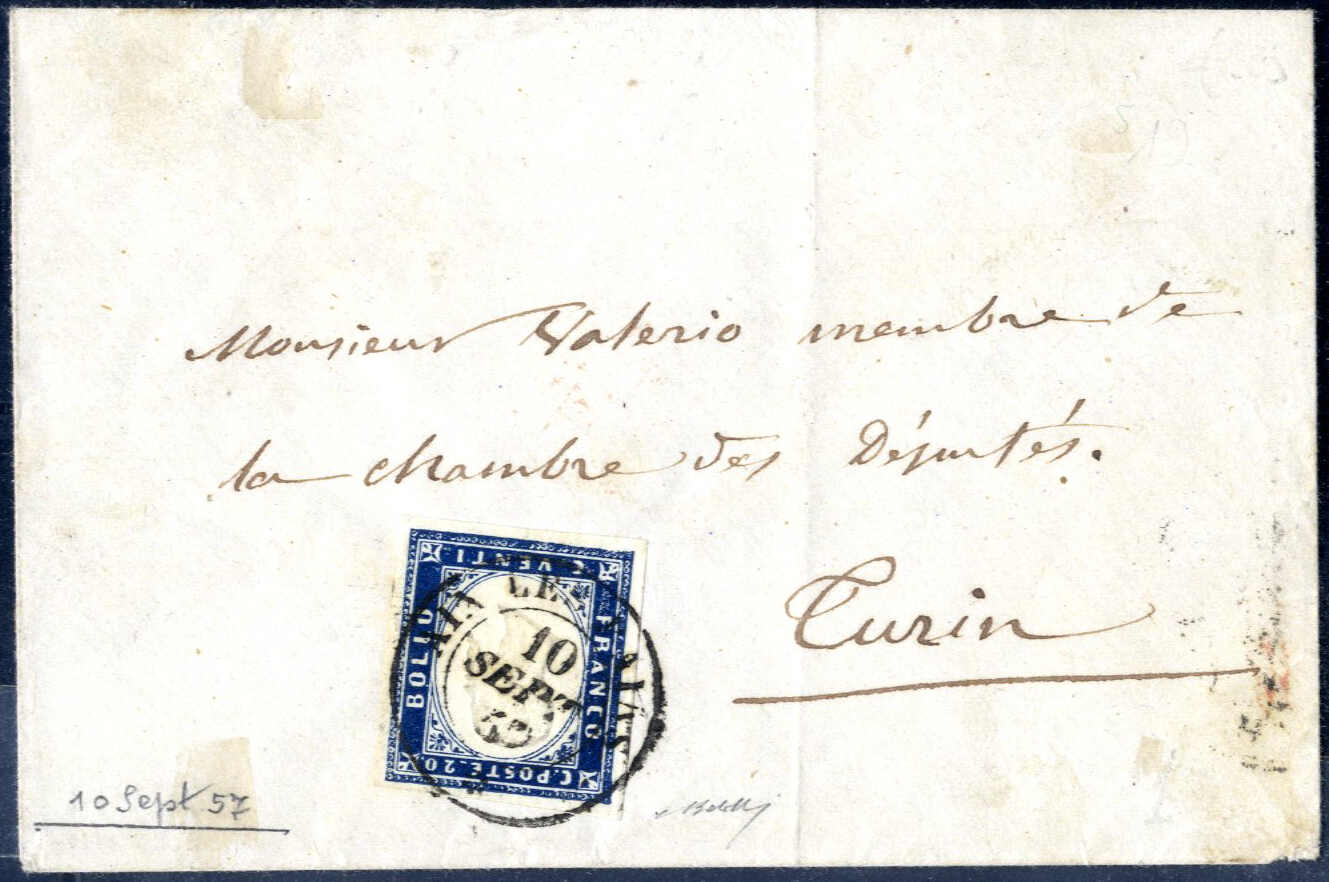 19
Monsieur Valerio membre de
la chambre des Députés.
Turin
C. VENTI
BOLLO
FRANCO
C. POSTE. 20
AIX LES BAINS
10
SEPT
10 Sept 57